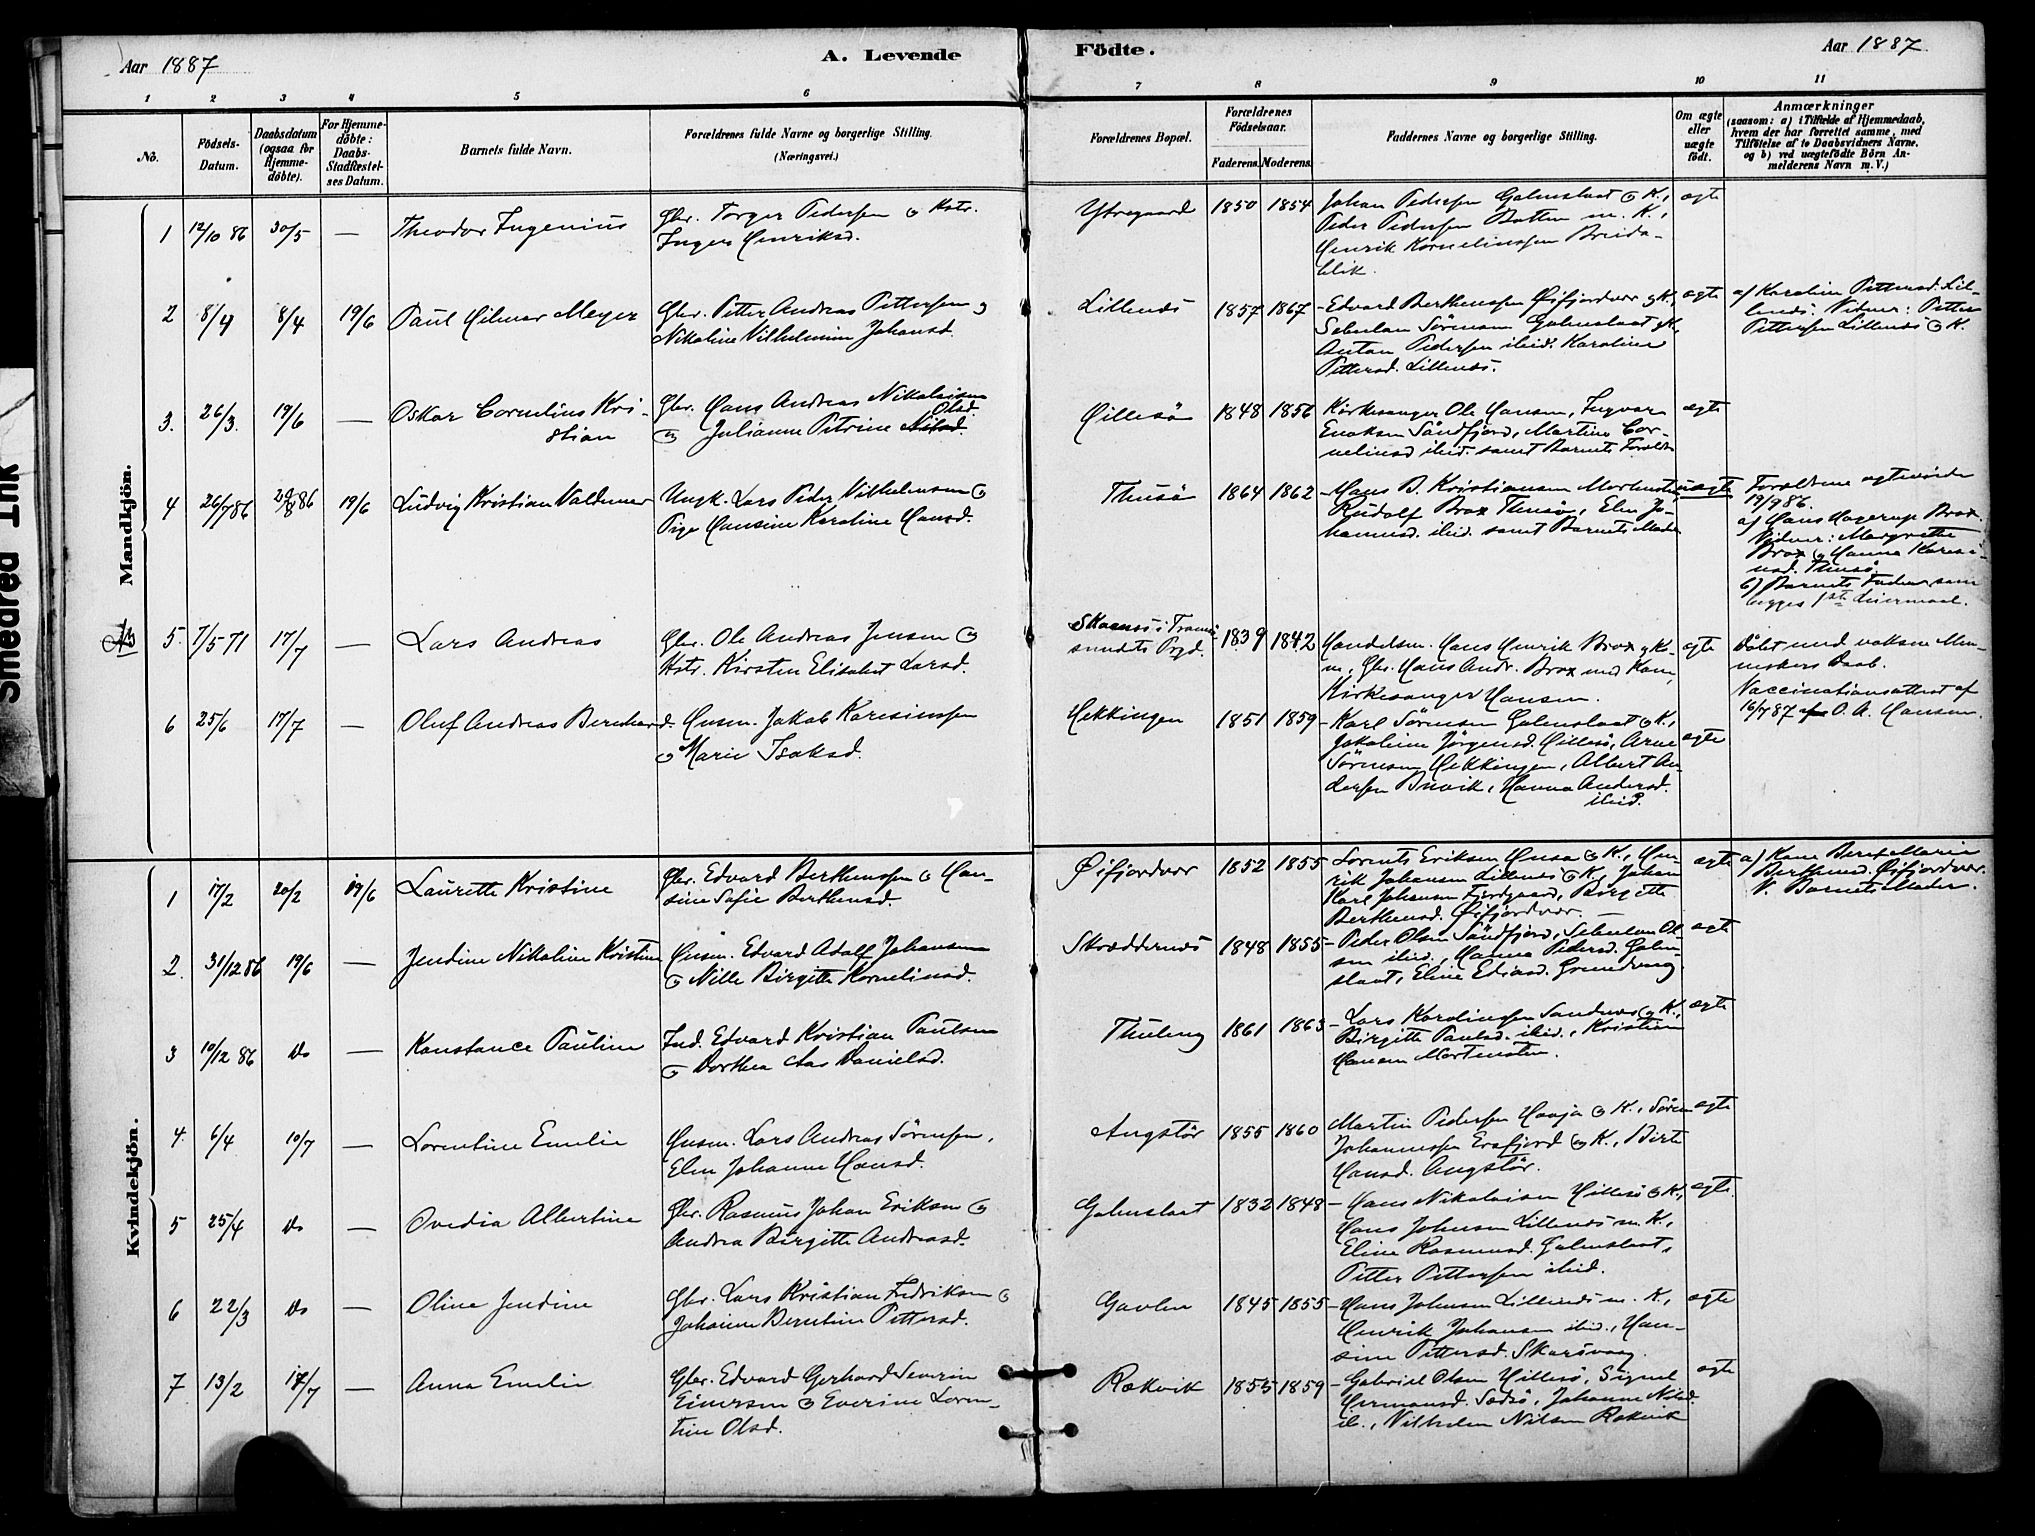 Aar 1887
A. Levende
Födte.
Aar 1887
1 2 3 4 5 6 7 8 9 10 11
No.
Födsels-
Datum.
Daabsdatum
(ogsaa for
Hjemme-
døbte).
For Hjemme-
døbte:
Daabs-
Stadfæstel-
ses Datum.
Barnets fulde Navn.
Forældrenes fulde Navne og borgerlige Stilling.
(Næringsvei.)
Forældrenes Bopæl.
Forældrenes
Födselsaar.
Faderens. Moderens.
Faddernes Navne og borgerlige Stilling.
Om ægte
eller
uægte
födt.
Anmærkninger
(saasom: a) i Tilfælde af Hjemmedaab,
hvem der har forrettet samme, med
Tilföielse af to Daabsvidners Navne,
og b) ved uægtefödte Börn An-
melderens Navn m.V.)
Mandkjön.
1 12/10 86 30/5 — Theodor Ingenius
Gbr. Torger Pedersen & Hstr.
Inger Henriksd.
Ytregaard 1850 1854
Johan Pedersen Galmslaat & K.,
Peder Pedersen Botten m. K.,
Henrik Kornelinssen Breida-
blik.
ægte
2 8/4 8/4 19/6 Paul Hilmar Meyer
Gbr. Petter Andreas Pettersen og
Nikoline Vilhelmine Johansd.
Lillenes 1857 1867
Edvard Berthenssen Øifjordvær & K.,
Sebulan Sörensen Galmslaat & K.,
Anton Pedersen ibid. Karoline
Pettersd. Lillenes.
ægte
a) Karoline Pettersd. Lil-
lenes. Vidner: Petter
Pettersen Lillenes & K.
3. 26/3. 19/6 — Oskar Cornelius Kri-
stian
Gbr. Hans Andreas Nikolaisen
& Julianne Petrine Nilsd. Olsd.
Hillesö 1848 1856
Kirkesanger Ole Hansen, Ingvar
Enoksen Sandfjord, Martine Cor-
neliusd. ibid. samt Barnets Forældre
ægte
4 26/7 86 29/8 86 19/6 Ludvig Kristian Valdemar
Ungk. Lars Peder Vilhelmsen &
Pige Hansine Karoline Hansd.
Thusö 1864 1862
Hans B. Kristiansen Mortensten,
Rudolf Brox Thusö, Elen Jo-
hannesd. ibid. samt Barnets Moder
uægte
Forældrene ægteviede
19/9 86.
a) Hans Hagerup Brox.
Vidner: Margrethe
Brox & Hanna Karesi-
usd. Thusö.
b) Barnets Fader som
begges 1ste Leiermaal.
NB
5. 7/5 71 17/7 — Lars Andreas
Gbr. Ole Andreas Jensen &
Hstr. Kirsten Elisabet Larsd.
Skarnes i Tromsö-
sundets Prgd. 1839 1842
Handelsm. Hans Henrik Brox & K.
m., Gbr. Hans Andr. Brox med Kone,
Kirkesanger Hansen.
ægte
Döbt med voksne Men-
neskers Daab.
Vaccinationsattest af
16/7 87 af O. A. Hansen.
6 25/6 17/7 — Oluf Andreas Bernhard.
Husm. Jakob Karesinssen
& Marie Isaksd.
Hekkingen 1851 1859
Karl Sörensen Galmslaat & K.,
Jakobine Jörgensd. Hillesö, Arne
Sörensen Hekkingen, Albert An-
dersen Buvik, Hanna Andersd.
ibid.
ægte
Kvindekjön.
1 17/2 20/2 19/6 Laurette Kristine
Gbr. Edvard Berthenssen & Han-
sine Sofie Berthensd.
Øifjordvær 1852 1855
Lorents Eriksen Husa & K., Hen-
rik Johansen Lillenes & K., Johan
Karl Johansen Fjordgaard, Birgitte
Berthensd. Øifjordvær.
ægte
a) Kone Beret Marie
Berthensd. Øifjordvær.
V. Barnets Moder.
2. 31/12 86 19/6 — Jendine Nikoline Kristine
Husm. Edvard Adolf Johansen
& Nille Birgitte Korneliusd.
Skræddernes 1848 1855
Peder Olsen Sandfjord, Sebulon Ol-
sen ibid., Hanna Pedersd. Galm-
slaat, Eline Ediasd. Grundvaag
ægte
3 10/12 86 Do — Konstance Pauline
Ind. Edvard Kristian Paulsen
& Dorthea Aas Danielsd.
Thuleng 1861 1863
Lars Karolinssen Sandnes & K.,
Birgitte Paulsd. ibid., Kristian
Hansen Mortensten.
ægte
4. 6/4 10/7 — Lorentine Emelie
Husm. Lars Andreas Sörensen,
Elen Johanne Hansd.
Angstör 1855 1860
Martin Pedersen Haaja & K., Sören
Johannessen Ersfjord & K., Birte
Hansd. Angstör.
ægte
5 25/4 Do — Ovedia Albertine
Gbr. Rasmus Johan Eriksen &
Andrea Birgitte Andreasd.
Galmslaat 1832 1848
Hans Nikolaisen Hillesö & K.,
Hans Johnsen Lillenes m. K.,
Eline Rasmusd. Galmslaat,
Petter Pettersen ibid.
ægte
6 22/3 Do — Oline Jendine
Gbr. Lars Kristian Fredriksen &
Johanne Berntine Pettersd.
Gavlen 1845 1855
Hans Johnsen Lillenes m. K.,
Henrik Johansen ibid., Han-
sine Pettersd. Skarsvaag.
ægte
7 13/2 17/7 — Anna Emelie
Gbr. Edvard Gerhard Severin
Einersen & Everine Loren-
tine Olsd.
Rækvik 1855 1859
Gabriel Olsen Hillesö, Signel
Hermansd. Sædsö, Johanne Nilsd.
ib., Vilhelm Nilsen Rækvik
ægte
Smedred Ink